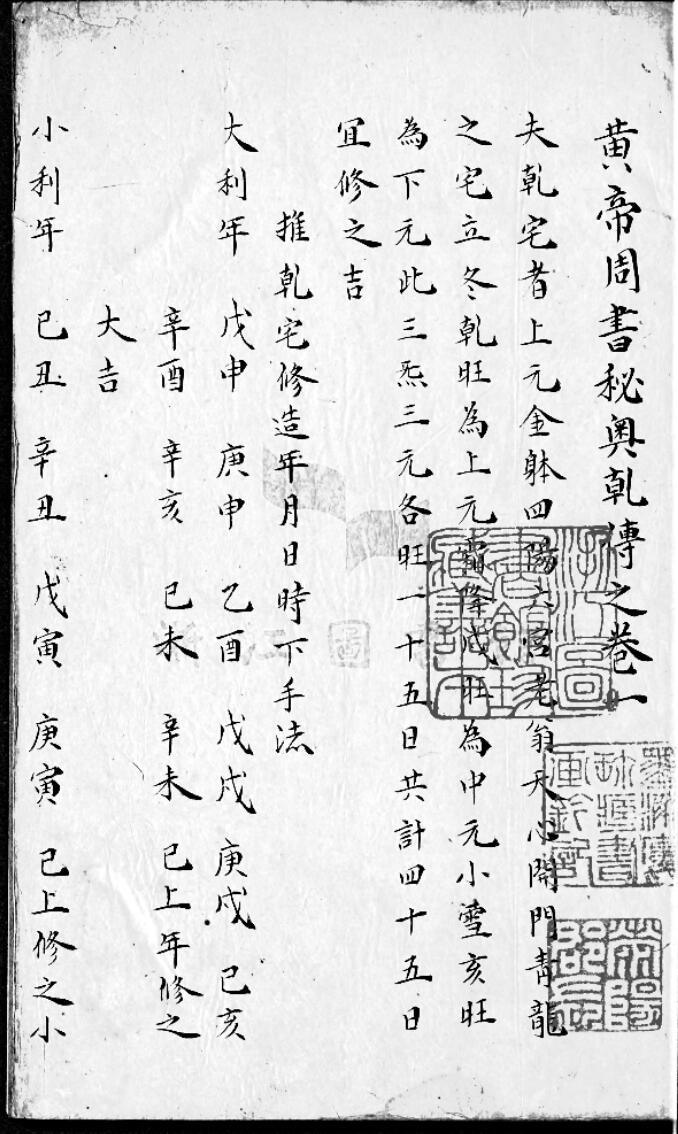 黄帝周書秘奥乹傳之巻一
夫乹宅者上元金躰四陽六宫老翁天心開門青龍
之宅立冬乹旺為上元霜降戌旺為中元小雪亥旺
為下元此三炁三元各旺一十五日共計四十五日
冝修之吉
推乹宅修造年月日時下手法
大利年 戊申 庚申 乙酉 戊戌 庚戌 己亥
辛酉 辛亥 己未 辛未 已上年修之
大吉
小利年 己丑 辛丑 戊寅 庚寅 已上修之小
浙江圖